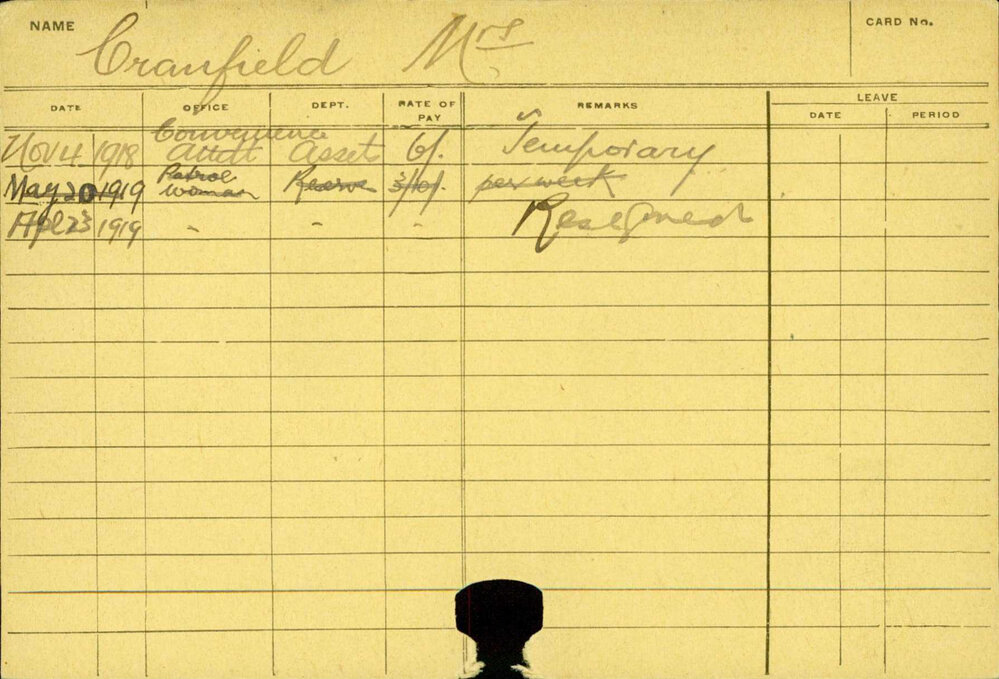 NAME Cranfield Mrs CARD No.
DATE OFFICE DEPT. RATE OF PAY REMARKS LEAVE
DATE PERIOD
Convenience
Nov 4 1918 Attdt Asset 6/. Temporary
May 20 1919 Patrol woman Reserve 3/10/. per week
Apl 23 1919 - - - Resigned